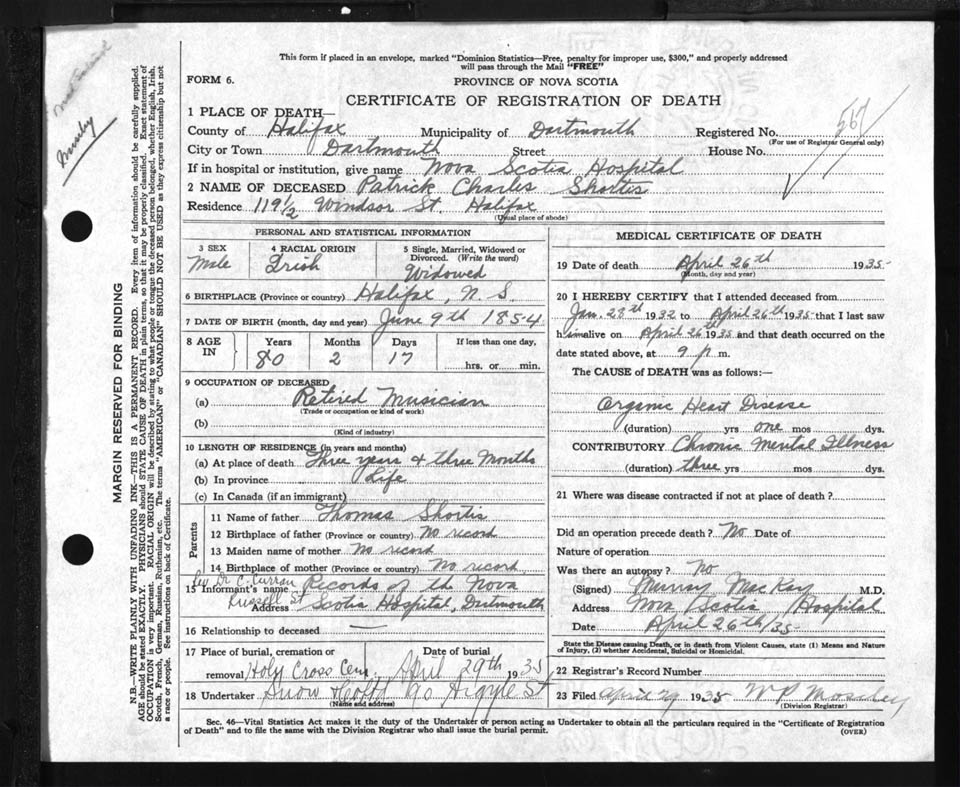 This form if placed in an envelope, marked "Dominion Statistics—Free, penalty for improper use, $300," and properly addressed
will pass through the Mail "FREE"
FORM 6.
PROVINCE OF NOVA SCOTIA
CERTIFICATE OF REGISTRATION OF DEATH
1 PLACE OF DEATH—
County of Halifax Municipality of Dartmouth Registered No. 567
(For use of Registrar General only)
City or Town Dartmouth Street House No.
If in hospital or institution, give name Nova Scotia Hospital
2 NAME OF DECEASED Patrick Charles Shortis
Residence 119½ Windsor St. Halifax
(Usual place of abode)
PERSONAL AND STATISTICAL INFORMATION
3 SEX Male
4 RACIAL ORIGIN Irish
5 Single, Married, Widowed or
Divorced. (Write the word)
Widowed
6 BIRTHPLACE (Province or country) Halifax, N. S.
7 DATE OF BIRTH (month, day and year) June 9th 1854
8 AGE IN
Years 80
Months 2
Days 17
If less than one day,
hrs. or min.
9 OCCUPATION OF DECEASED
(a) Retired Musician
(Trade or occupation or kind of work)
(b)
(Kind of industry)
10 LENGTH OF RESIDENCE (in years and months)
(a) At place of death Three years & three Months
(b) In province Life
(c) In Canada (if an immigrant)
Parents
11 Name of father Thomas Shortis
12 Birthplace of father (Province or country) No record
13 Maiden name of mother No record
14 Birthplace of mother (Province or country) No record
Rev Dr C. Curran
15 Informant's name Records of th Nova
Russell St
Address Scotia Hospital, Dartmouth
16 Relationship to deceased —
17 Place of burial, cremation or Date of burial
removal Holy Cross Cem. April 29th 1935
18 Undertaker Snow & Co Ltd 90 Argyle St
(Name and address)
MEDICAL CERTIFICATE OF DEATH
19 Date of death April 26th 1935
(Month, day and year)
20 I HEREBY CERTIFY that I attended deceased from
Jan. 28th 1932 to April 26th 1935 that I last saw
him alive on April 26th 1935 and that death occurred on the
date stated above, at 9 p m.
The CAUSE of DEATH was as follows:—
Organic Heart Disease
(duration) yrs one mos dys.
CONTRIBUTORY Chronic Mental Illness
(duration) three yrs mos dys.
21 Where was disease contracted if not at place of death?
Did an operation precede death? No Date of
Nature of operation
Was there an autopsy? No
(Signed) Murray MacKay M.D.
Address Nova Scotia Hospital
Date April 26th/35
State the Disease causing Death, or in death from Violent Causes, state (1) Means and Nature
of Injury, (2) whether Accidental, Suicidal or Homicidal.
22 Registrar's Record Number
23 Filed April 29 1935
(Division Registrar)
Sec. 46—Vital Statistics Act makes it the duty of the Undertaker or person acting as Undertaker to obtain all the particulars required in the "Certificate of Registration
of Death" and to file the same with the Division Registrar who shall issue the burial permit.
(OVER)
MARGIN RESERVED FOR BINDING
N.B.—WRITE PLAINLY WITH UNFADING INK—THIS IS A PERMANENT RECORD. Every item of information should be carefully supplied.
AGE should be stated EXACTLY. PHYSICIANS should STATE CAUSE OF DEATH in plain terms, so that it may be properly classified. Exact statement of
OCCUPATION is very important. RACIAL ORIGIN will be described by stating to what people or tongue the deceased person belonged, whether English, Irish,
Scotch, French, German, Russian, Ruthenian, etc. The terms "AMERICAN" or "CANADIAN" SHOULD NOT BE USED as they express citizenship but not
a race or people. See instructions on back of Certificate.